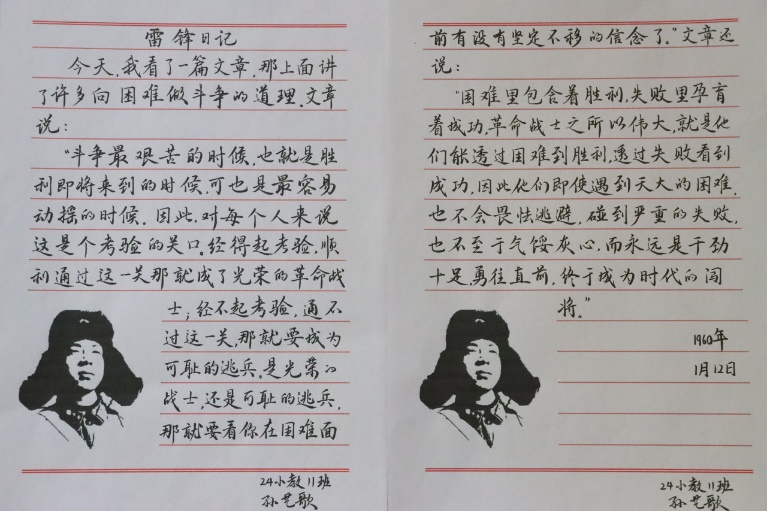 雷锋日记
今天,我看了一篇文章,那上面讲
了许多向困难做斗争的道理.文章
说:
“斗争最艰苦的时候,也就是胜
利即将来到的时候,可也是最容易
动摇的时候.因此,对每个人来说
这是个考验的关口.经得起考验,顺
利通过这一关那就成了光荣的革命战
士;经不起考验,通不
过这一关,那就要成为
可耻的逃兵.是光荣的
战士,还是可耻的逃兵,
那就要看你在困难面
24小教11班
孙艺歌
前有没有坚定不移的信念了.”文章还
说:
“困难里包含着胜利,失败里孕育
着成功.革命战士之所以伟大,就是他
们能透过困难到胜利,透过失败看到
成功,因此他们即使遇到天大的困难,
也不会畏怯逃避,碰到严重的失败,
也不至于气馁灰心,而永远是干劲
十足,勇往直前,终于成为时代的闯
将。”
1960年
1月12日
24小教11班
孙艺歌